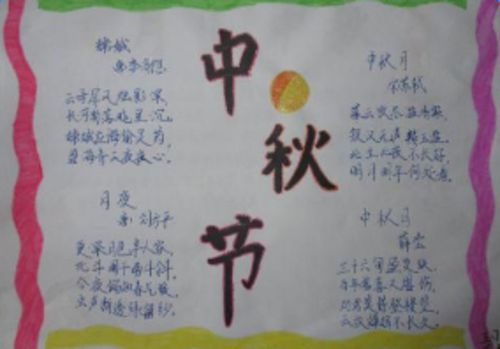 中秋节
嫦娥
唐李商隐
云母屏风烛影深,
长河渐落晓星沉。
嫦娥应悔偷灵药,
碧海青天夜夜心。
月夜
唐 刘方平
更深月色半人家,
北斗阑干南斗斜。
今夜偏知春气暖,
虫声新透绿窗纱。
中秋月
宋苏轼
暮云收尽溢清寒,
银汉无声转玉盘。
此生此夜不长好,
明月明年何处看。
中秋月
薛莹
三十六旬盈复缺,
百年堪喜又堪伤,
劝君莫惜登楼望,
云放婵娟不长久。